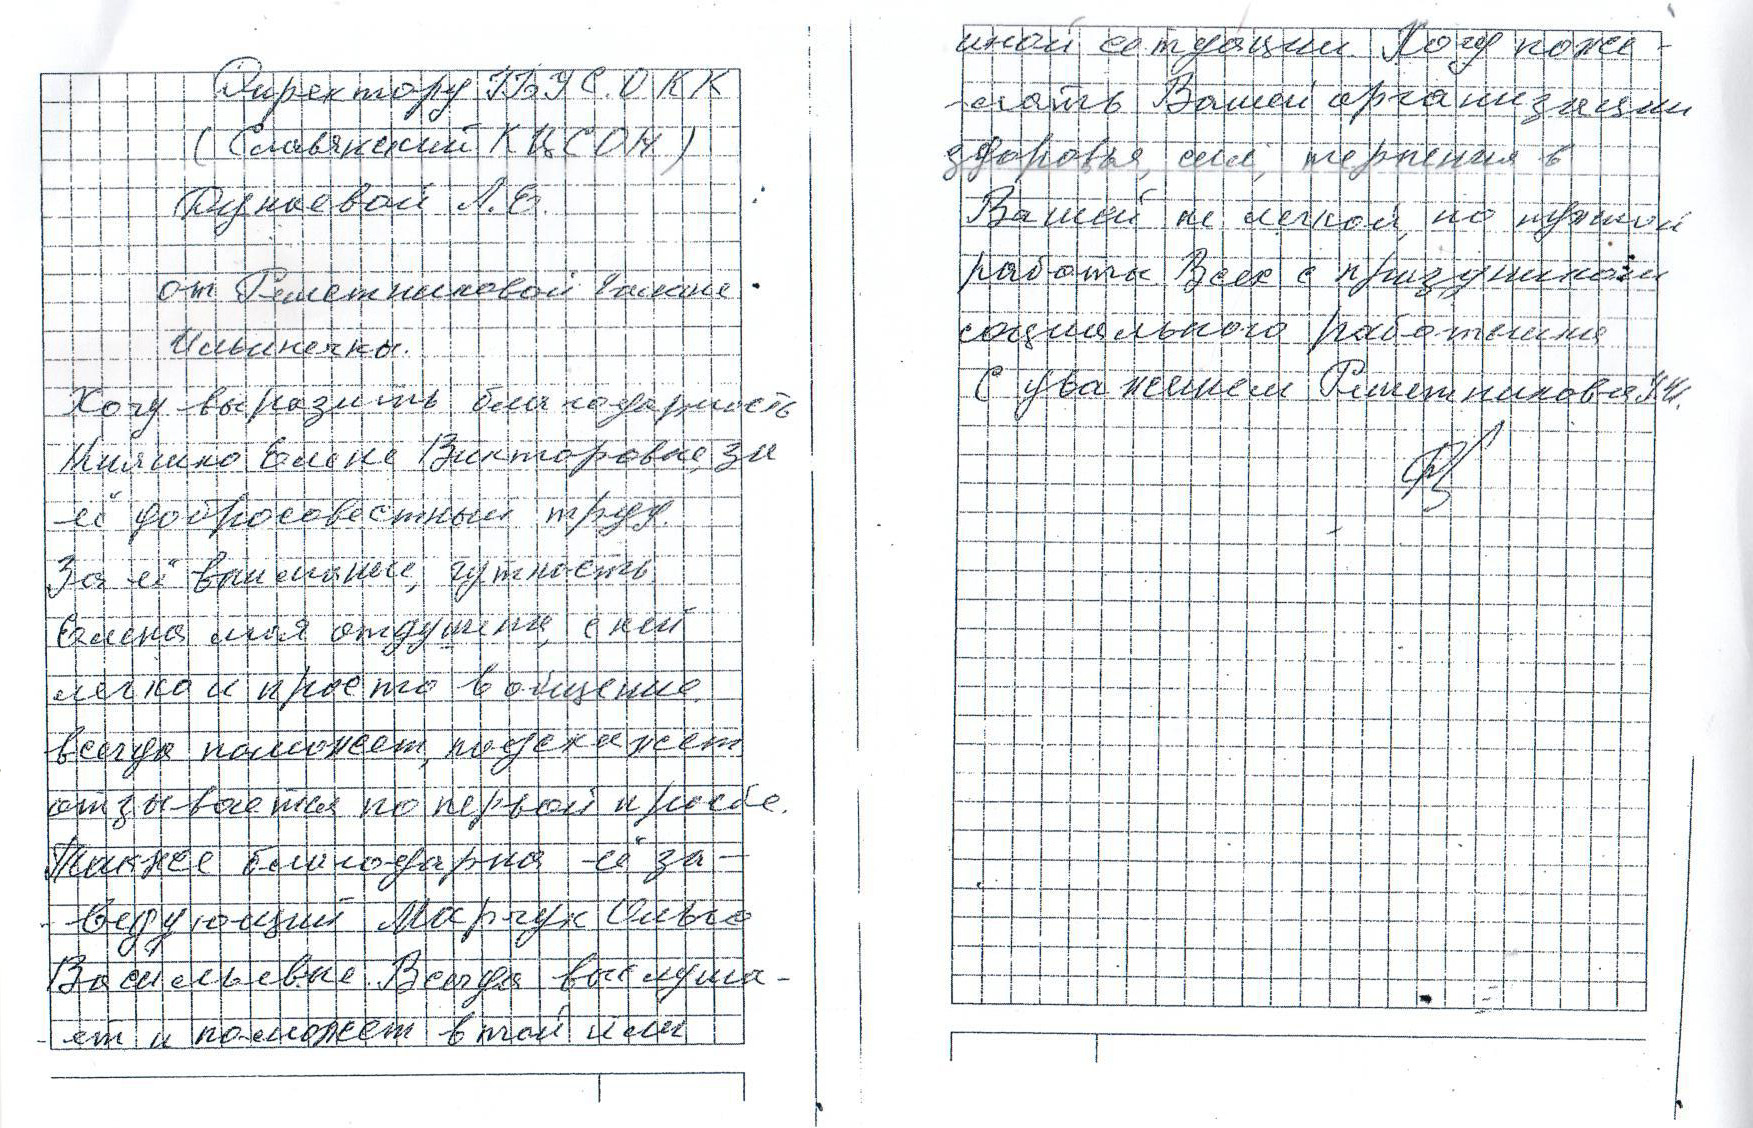 Директору ГБУ С.О КК
(Славянский КЦСОН)
Дунаевой Л.Е.
от Решетниковой
Ильинечны.
Хочу выразить благодарность
Елене Викторовне, за
её добросовестный труд.
За её внимание, чуткость
Елена моя отдушина, с ней
легко и просто в общение,
всегда поможет, подскажет
отзывается по первой просбе.
Также благодарна её за-
-ведующий Марчук Ольге
Васильевне. Всегда выслуша-
-ет и поможет в той или
иной ситуации. Хочу поже-
-лать Вашей организации
здоровья, сил, терпения в
Вашей не легкой, но нужной
работы. Всех с праздником
социального работника
С уважением Решетникова